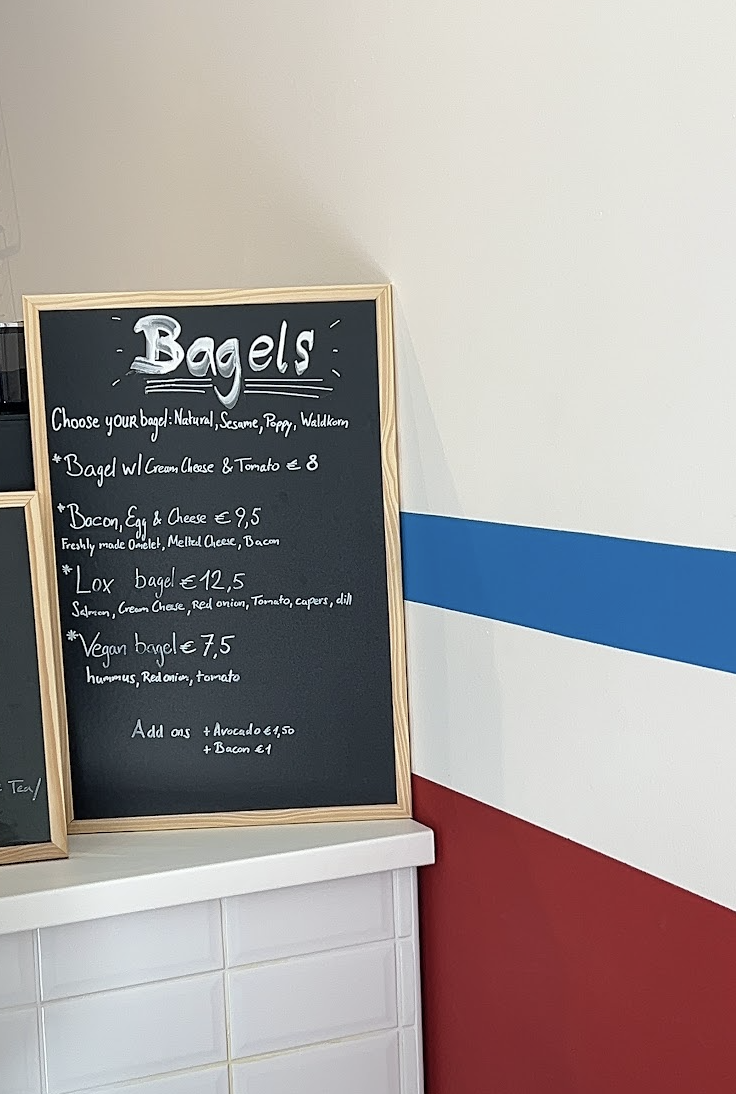 Bagels
Choose your bagel: Natural, Sesame, Poppy, Waldkorn
*Bagel w/ Cream Cheese & Tomato € 8
*Bacon, Egg & Cheese € 9,5
Freshly made Omelet, Melted Cheese, Bacon
*Lox bagel € 12,5
Salmon, Cream Cheese, Red onion, Tomato, capers, dill
*Vegan bagel € 7,5
hummus, Red onion, tomato
Add ons + Avocado € 1,50
+ Bacon € 1
Tea/